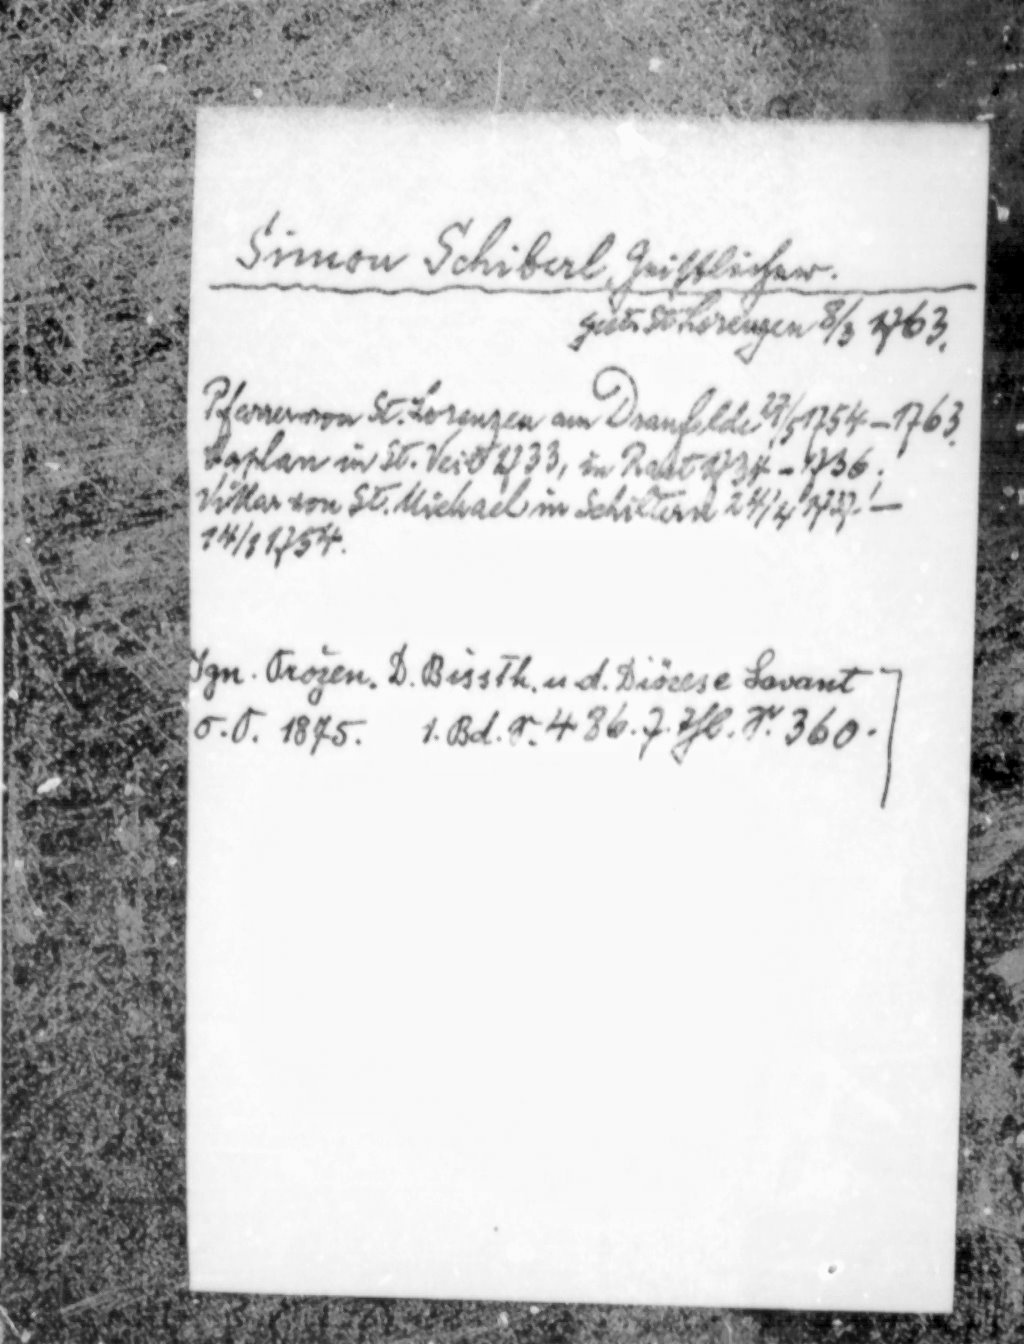 Simon Schiberl, Geistlicher.
gest. St. Lorenzen 8/3 1763.
Pfarrer von St. Lorenzen am Draufelde 27/5 1754 – 1763.
Kaplan in St. Veit 1733, in Rast 1734 – 1736;
Vikar von St. Michael in Schiltern 24/4 1737 –
14/1 1754.
Ign. Orožen. D. Bissth. u. d. Diöcese Lavant
1875. 1. Bd. S. 486. J. S. 360.